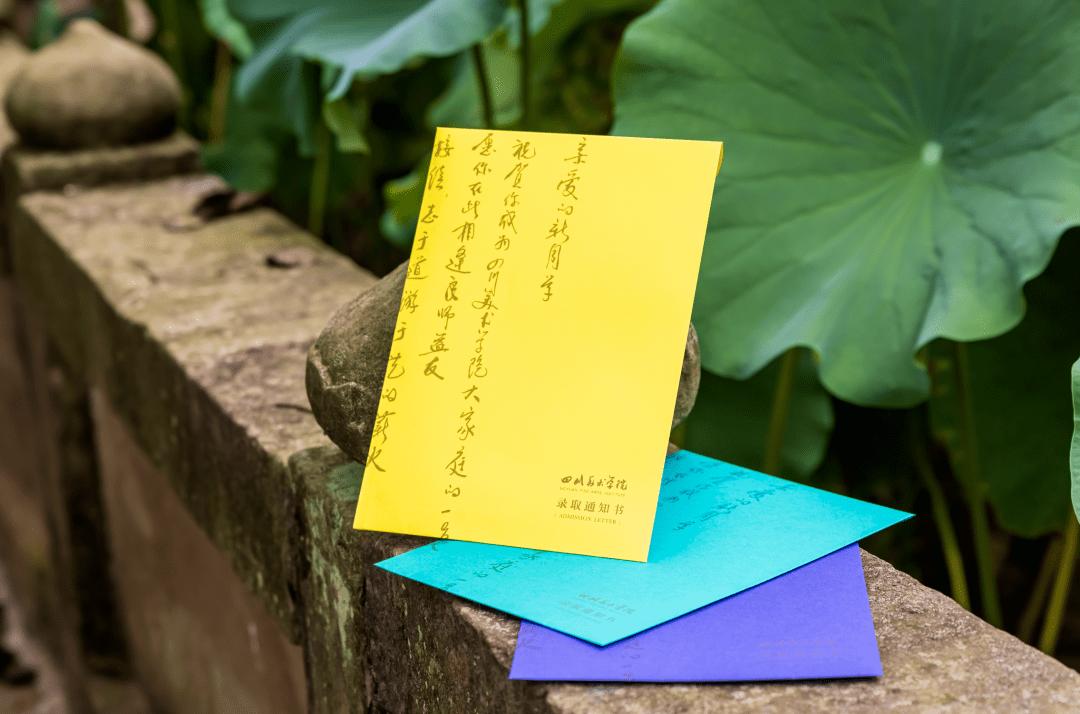 亲爱的新同学
祝贺你成为四川美术学院大家庭的一员
愿你在此相逢良师益友
接续志于道游于艺的薪火
四川美术学院
SICHUAN FINE ARTS INSTITUTE
录取通知书
(ADMISSION LETTER)
四川美术学院
录取通知书